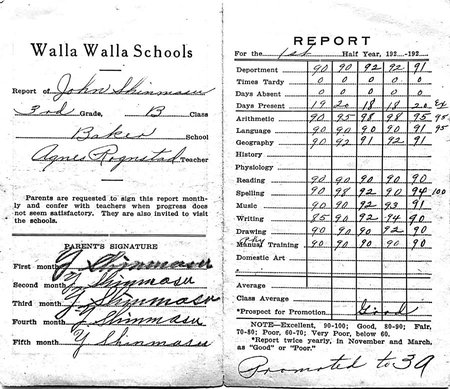 Walla Walla Schools
Report of John Shinmasu
3rd Grade, B Class
Baker School
Agnes Rognstad Teacher
Parents are requested to sign this report month-
ly and confer with teachers when progress does
not seem satisfactory. They are also invited to visit
the schools.
PARENT'S SIGNATURE
First month Y Shinmasu
Second month Y Shinmasu
Third month Y Shinmasu
Fourth month Y Shinmasu
Fifth month Y Shinmasu
REPORT
For the 1st Half Year, 192 -192
Department 90 90 92 92 91
Times Tardy 0 0 0 0 0
Days Absent 0 0 0 0 0
Days Present 19 20 18 18 20 Ex
Arithmetic 90 95 98 98 95 95
Language 90 90 90 90 91 95
Geography 90 92 91 92 91
History
Physiology
Reading 90 90 90 90 90
Spelling 90 98 92 90 94 100
Music 90 90 92 93 91
Writing 85 90 92 94 90
Drawing 90 90 90 92 90
Manual Training 90 90 90 90 90
Domestic Art
Average
Class Average
*Prospect for Promotion Good
NOTE—Excellent, 90-100; Good, 80-90; Fair,
70-80; Poor, 60-70; Very Poor, below 60.
*Report twice yearly, in November and March,
as "Good" or "Poor."
Promoted to 3A